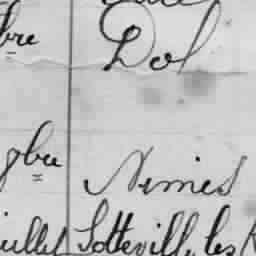 bre Dol
gbre Nimes
juillet Sotteville les